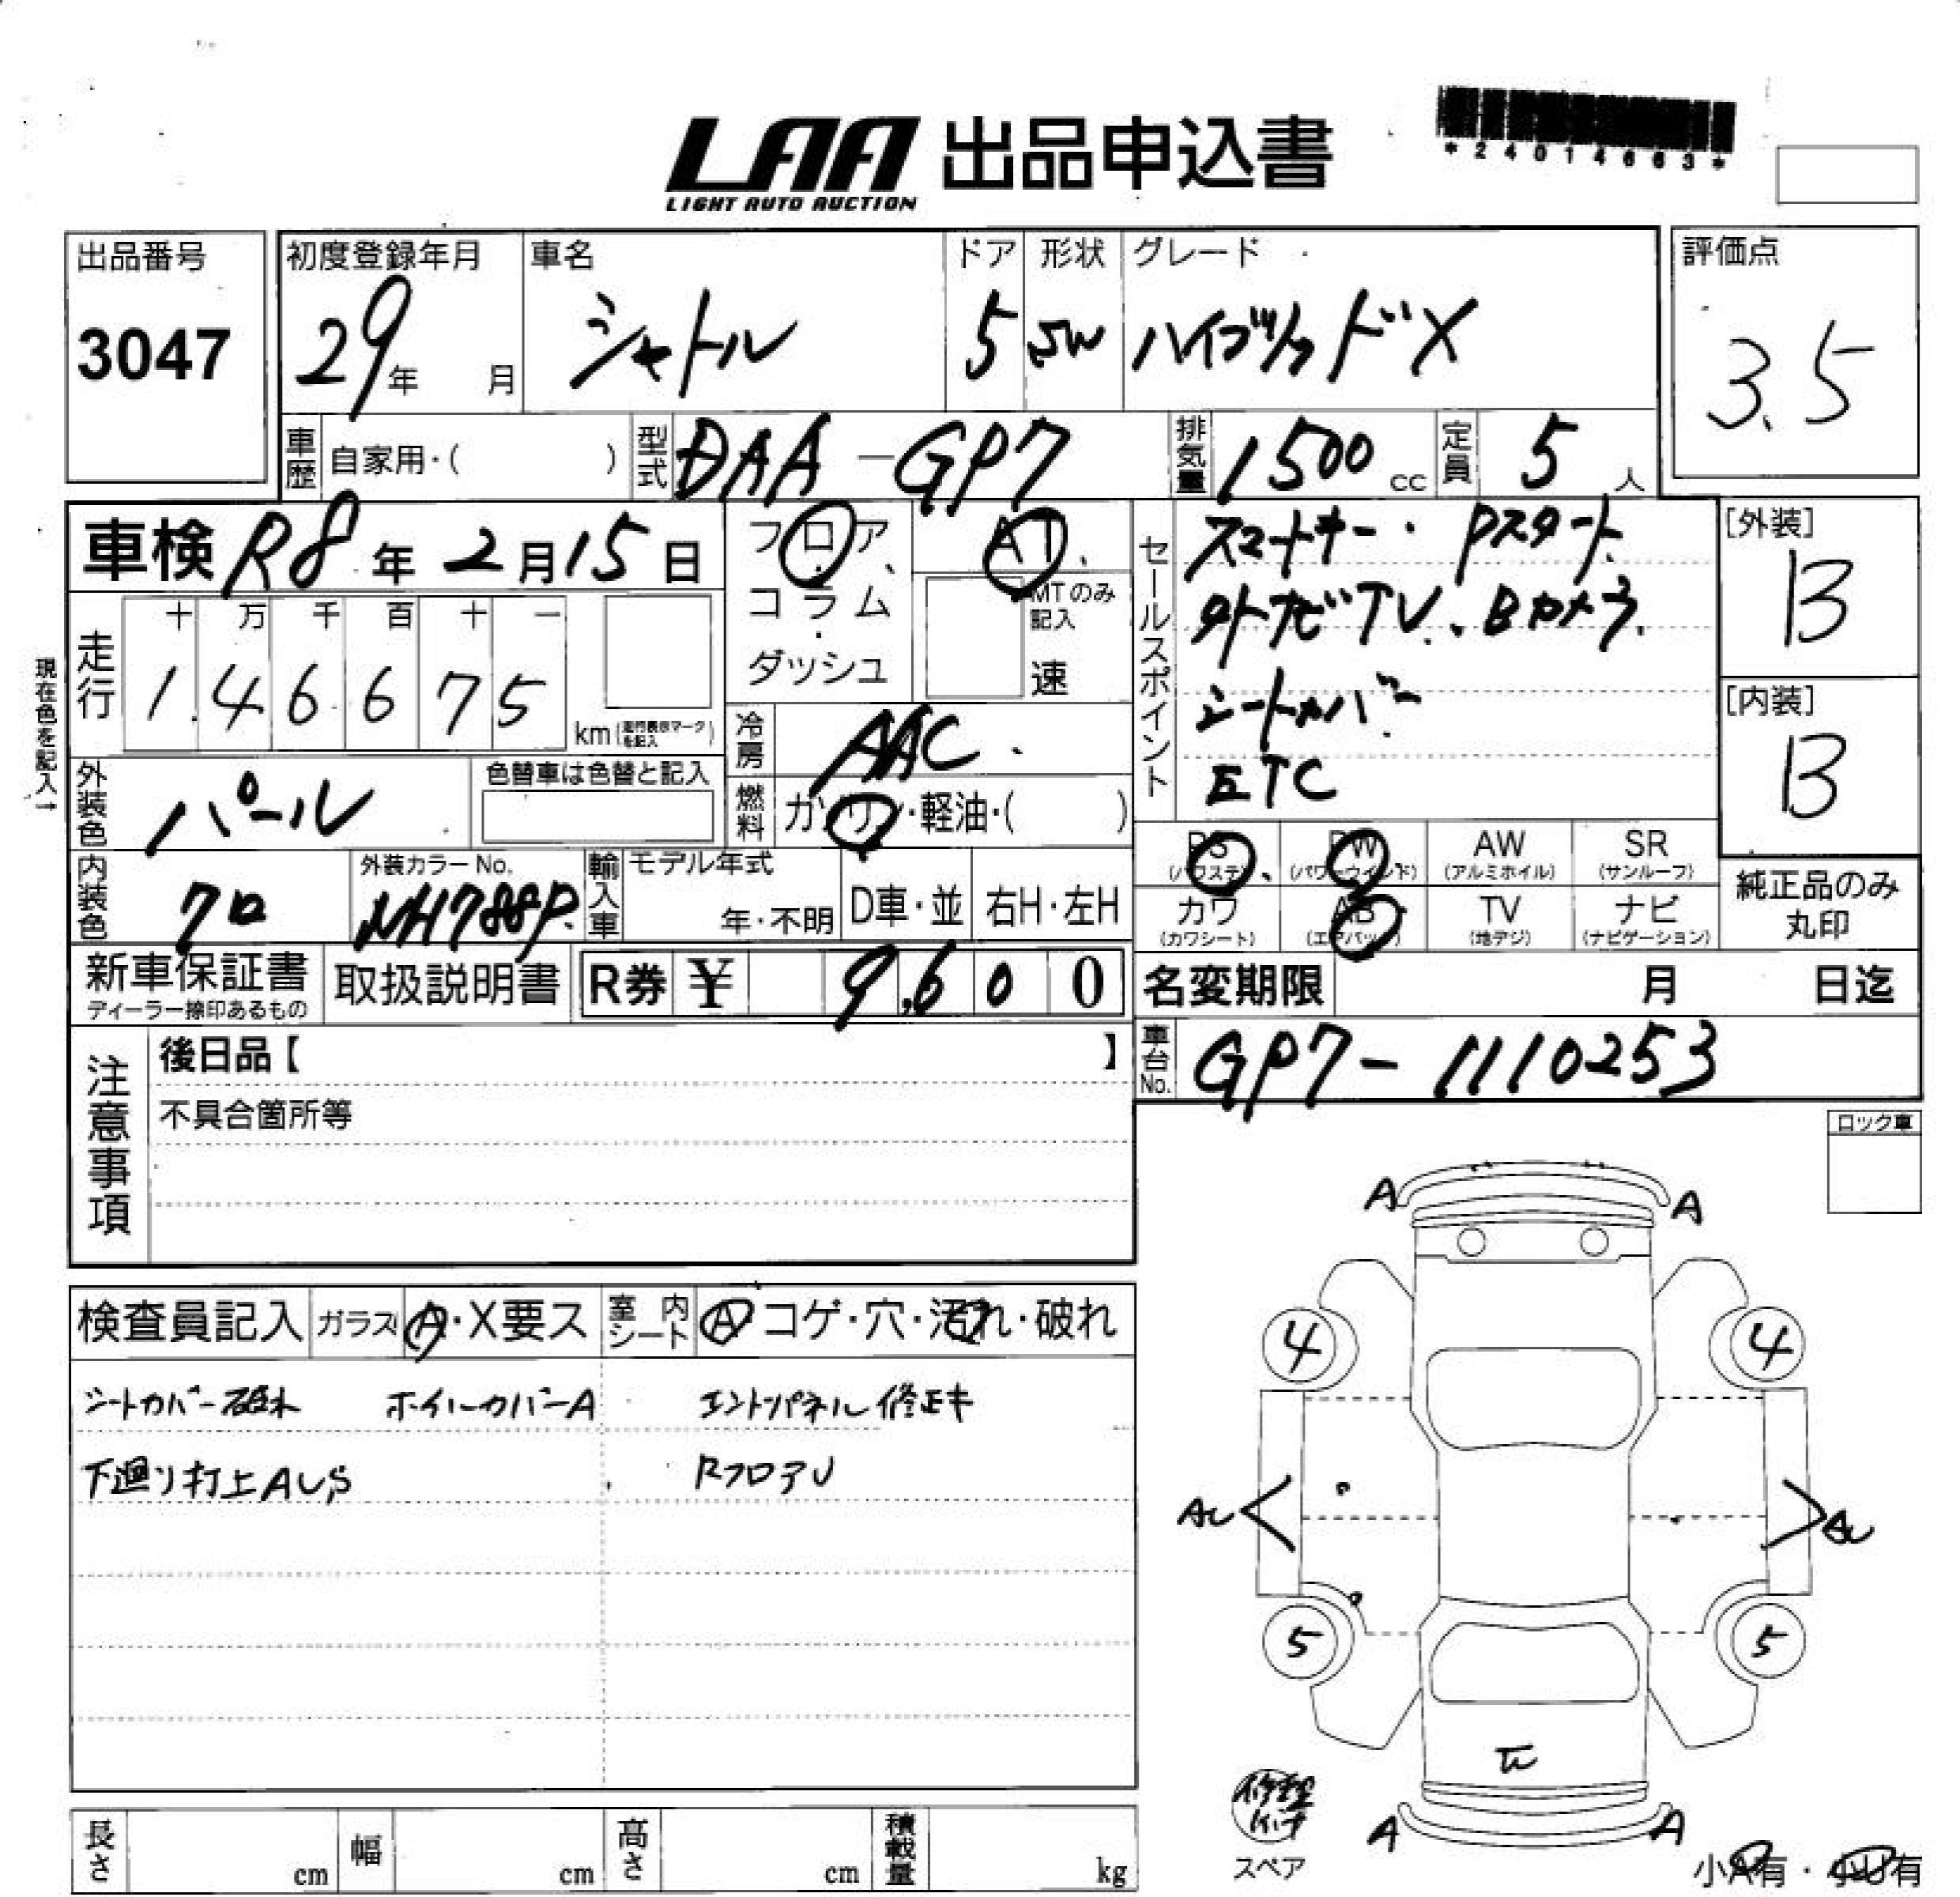 LAA 出品申込書
LIGHT AUTO AUCTION
*24014663*
出品番号
3047
初度登録年月
29年 月
車名
シャトル
ドア
5
形状
SW
グレード
ハイブリッドX
評価点
3.5
車歴 自家用・( )
型式 DAA-GP7
排気量 1500 cc
定員 5 人
車検 R8年2月15日
フロア
コラム
ダッシュ
AT
MTのみ記入
速
セールスポイント
スマートキー・Pスタート
外ナビTV、Bカメラ
シートカバー
ETC
[外装]
B
[内装]
B
現在色を記入→
走行
十 万 千 百 十 一
1 4 6 6 7 5
km(走行表示マークを記入)
冷房 AAC
燃料 ガソリン・軽油・( )
外装色 パール
色替車は色替と記入
内装色 クロ
外装カラーNo.
NH788P
輸入車
モデル年式
年・不明
D車・並
右H・左H
PS (パワステ)
PW (パワーウインド)
AW (アルミホイル)
SR (サンルーフ)
カワ (カワシート)
AB (エアバッグ)
TV (地デジ)
ナビ (ナビゲーション)
純正品のみ丸印
新車保証書
ディーラー捺印あるもの
取扱説明書
R券 ¥ 9,600
名変期限 月 日迄
車台No. GP7-1110253
注意事項
後日品【 】
不具合箇所等
ロック車
検査員記入
ガラス A・X要ス
室内シート A コゲ・穴・汚れ・破れ
シートカバー破れ ホイールカバーA エンドパネル修正キ
下廻り打上AUS RフロアU
A A
4 4
AU AU
5 5
A A
修理キット
スペア
小A有・小U有
長さ cm
幅 cm
高さ cm
積載量 kg